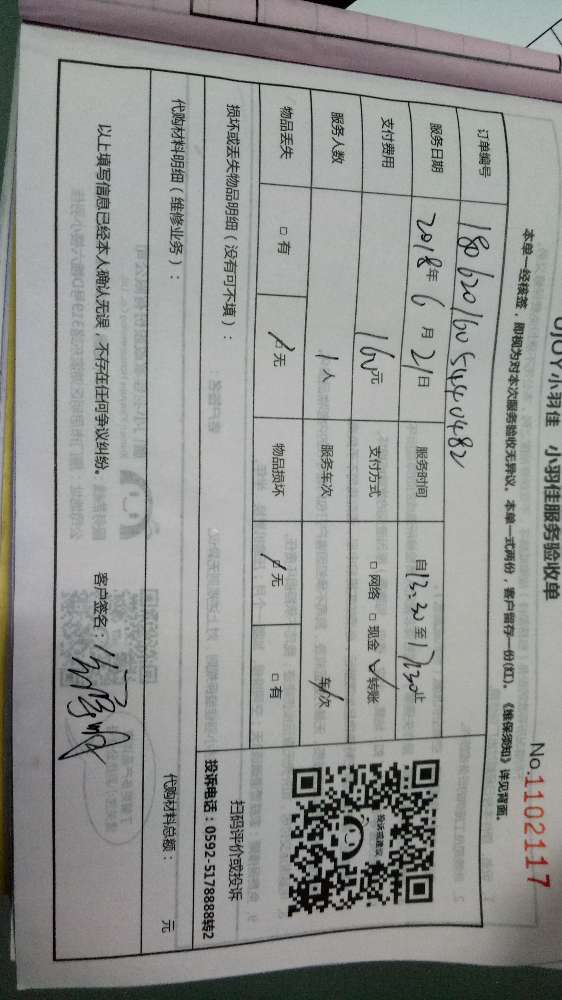 小羽佳 小羽佳服务验收单
No.1102117
本单一经核签，即视为对本次服务验收无异议。本单一式两份，客户留存一份(红)。《维保须知》详见背面。
订单编号 180620160544 0482
服务日期 2018年 6 月 21日 服务时间 自13:30至17:30止
支付费用 160元 支付方式 □ 网络 □ 现金 ✓转账
服务人数 1人 服务车次 / 车次
物品丢失 □ 有 □ 无 物品损坏 □ 无 □ 有
扫码评价或投诉
投诉电话：0592-5178888转2
损坏或丢失物品明细（没有可不填）：
代购材料明细（维修业务）： 代购材料总额： 元
以上填写信息已经本人确认无误，不存在任何争议纠纷。 客户签名：